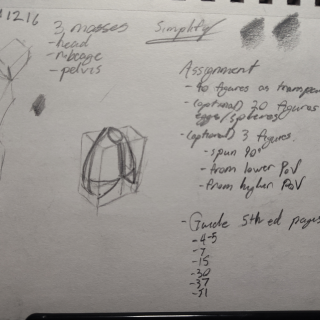 1216
3 masses
- head
- ribcage
- pelvis
Simplify
Assignment
- 40 figures as transpa
- (optional) 20 figures
eggs/spheres
- (optional) 3 figures
- spun 90°
- from lower PoV
- from higher PoV
- Guide Sthred pages
- 4-5
- 7
- 15
- 30
- 37
- 51